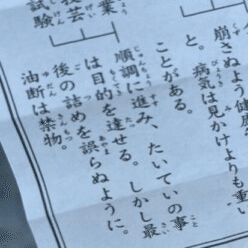 崩さぬよう
と。病気は見かけよりも重い
ことがある。
業
技芸
試験
順調に進み、たいていの事
は目的を達せる。しかし最
後の詰めを誤らぬように。
油断は禁物。